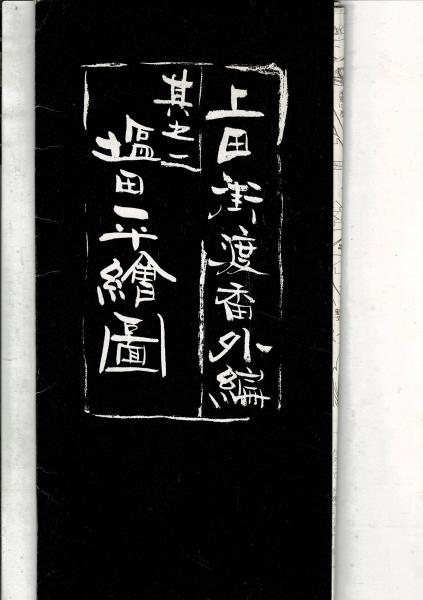 上田街渡番外編
其之二
塩田平繪圖